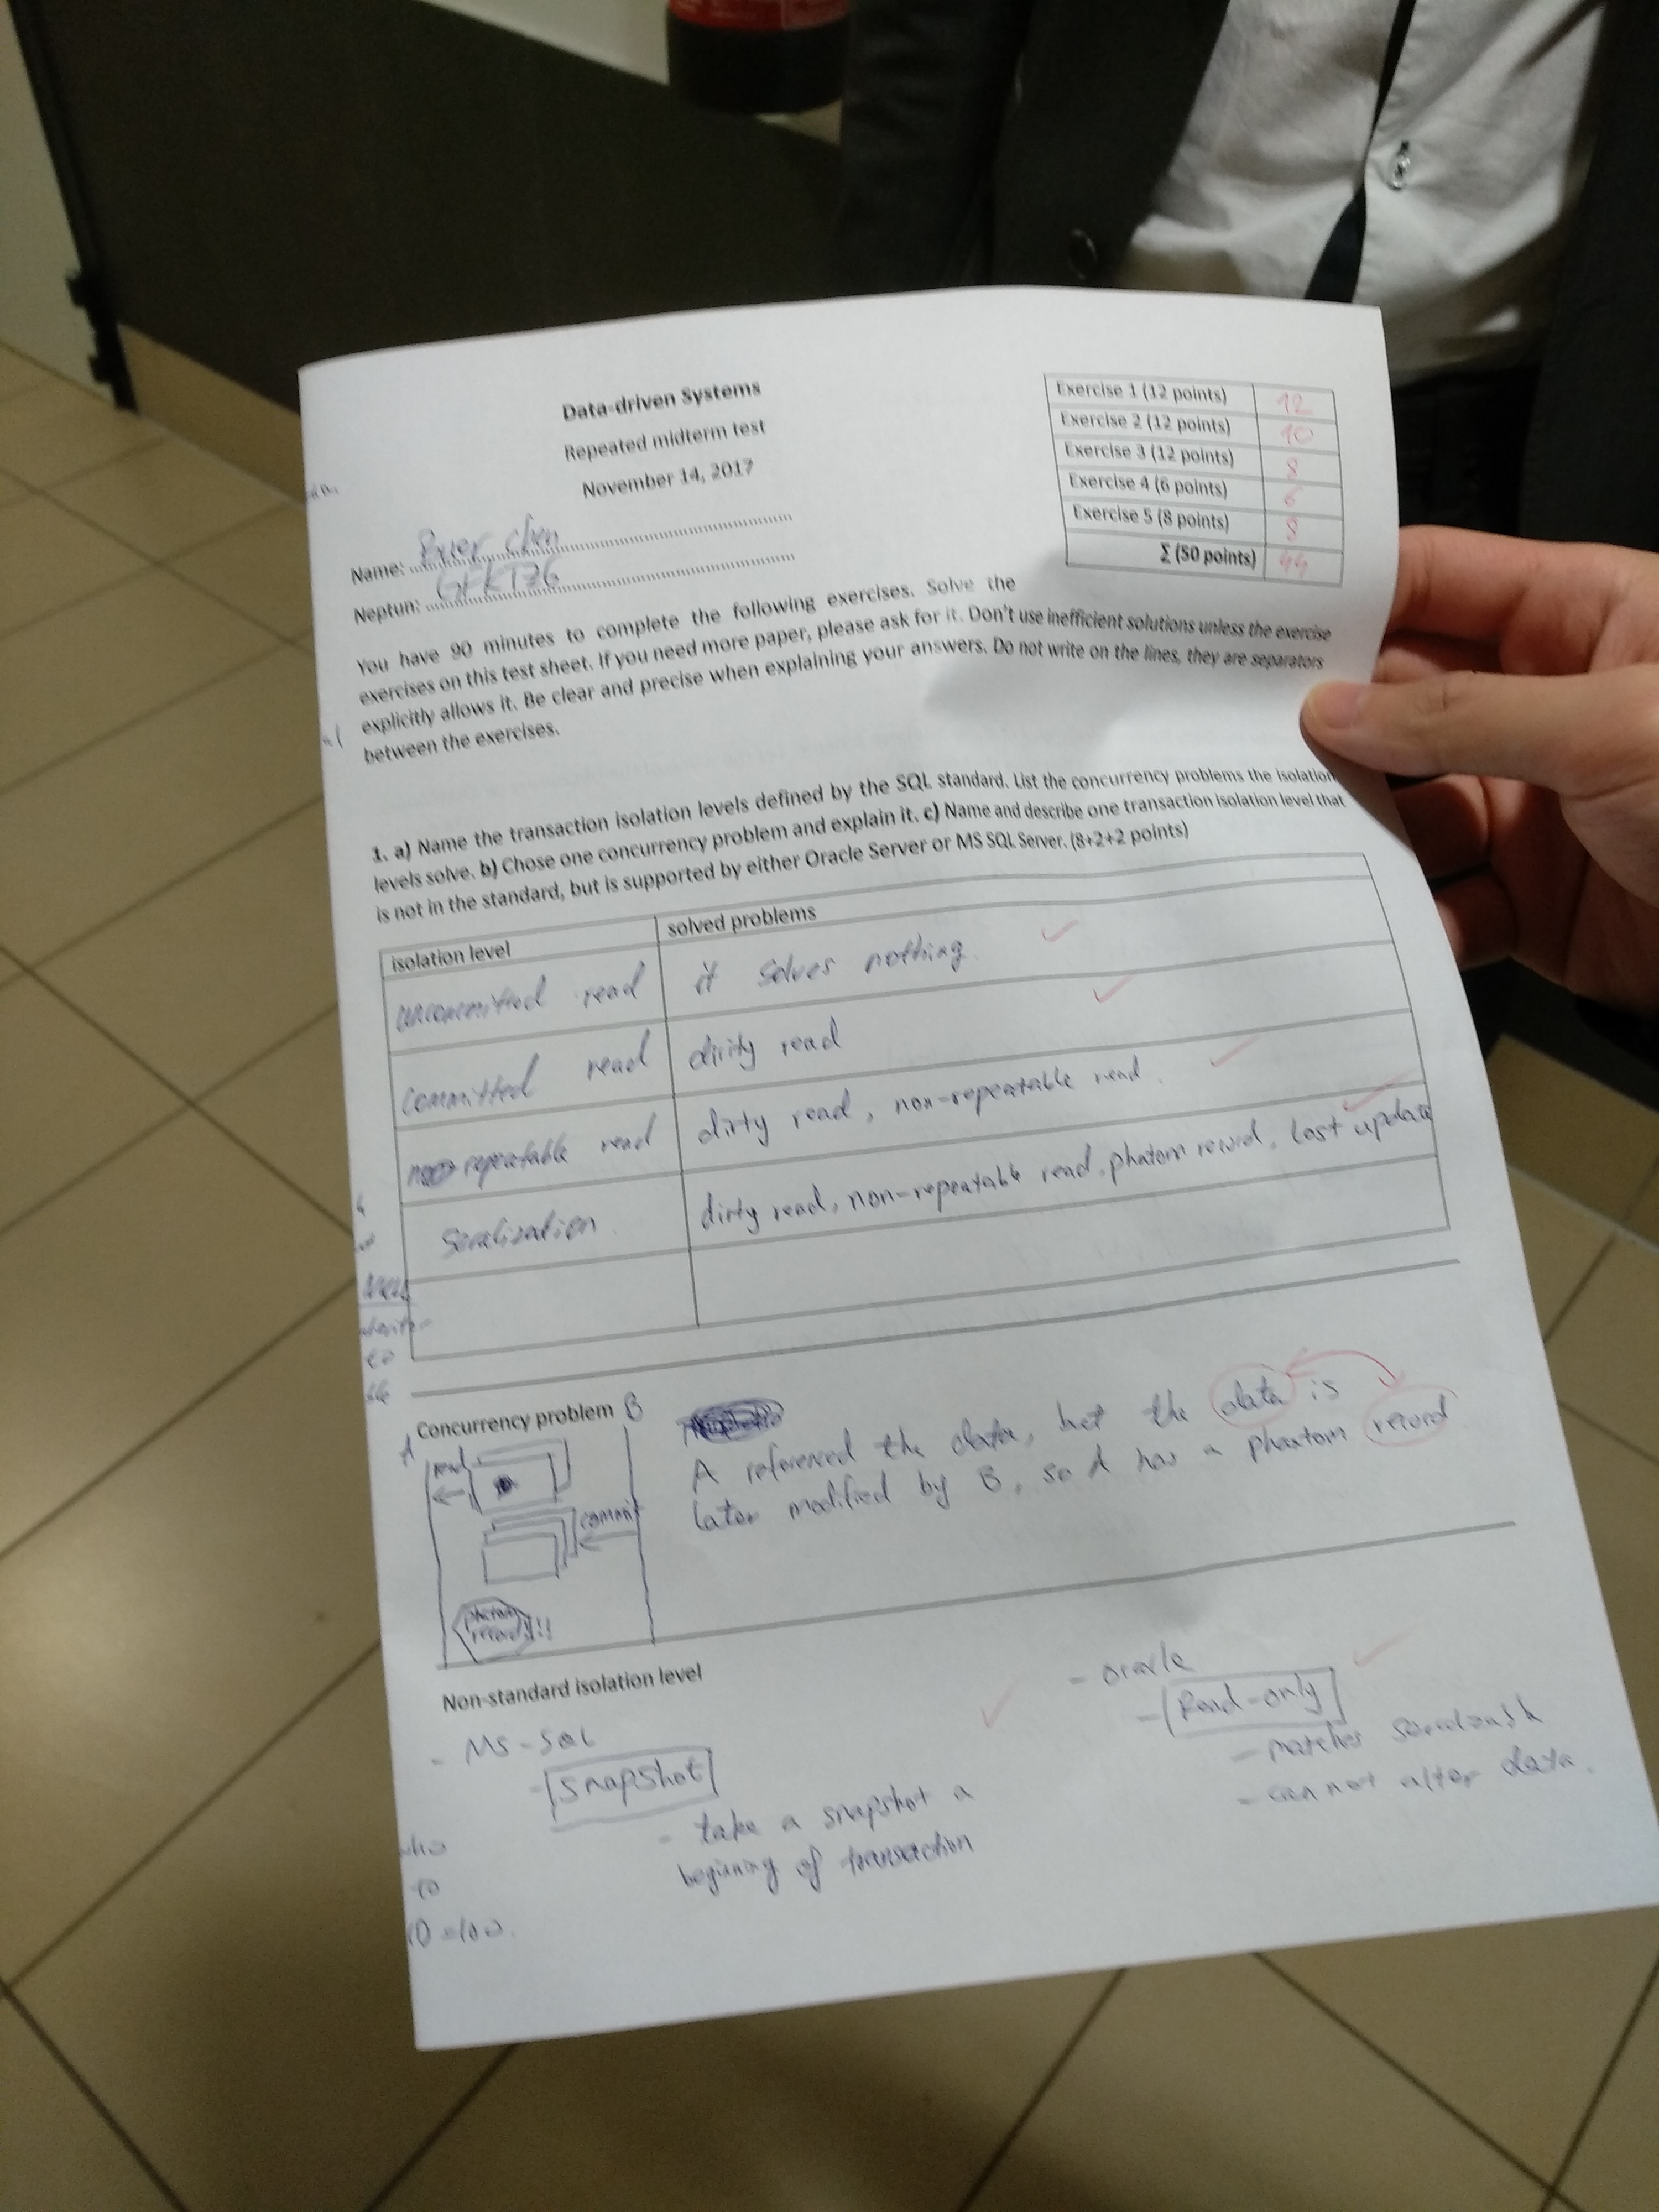 Data-driven Systems
Repeated midterm test
November 14, 2017
Exercise 1 (12 points) 12
Exercise 2 (12 points) 10
Exercise 3 (12 points) 8
Exercise 4 (6 points) 6
Exercise 5 (8 points) 8
Σ (50 points) 44
Name: chen
Neptun:
You have 90 minutes to complete the following exercises. Solve the
exercises on this test sheet. If you need more paper, please ask for it. Don't use inefficient solutions unless the exercise
explicitly allows it. Be clear and precise when explaining your answers. Do not write on the lines, they are separators
between the exercises.
1. a) Name the transaction isolation levels defined by the SQL standard. List the concurrency problems the isolation
levels solve. b) Chose one concurrency problem and explain it. c) Name and describe one transaction isolation level that
is not in the standard, but is supported by either Oracle Server or MS SQL Server. (8+2+2 points)
isolation level solved problems
uncommitted read it solves nothing.
committed read dirity read
repeatable read dirty read, non-repeatable read.
dirty read, non-repeatable read, phatom record, lost update
Concurrency problem
A B
read
commit
phatom
record!!!
A referenced the data, but the data is
later modified by B, so A has a phantom record
Non-standard isolation level
- MS-SQL
- Snapshot
- take a snapshot a
beginning of transaction
- oracle
- Read-only
- matches
- can not alter data.
who
to